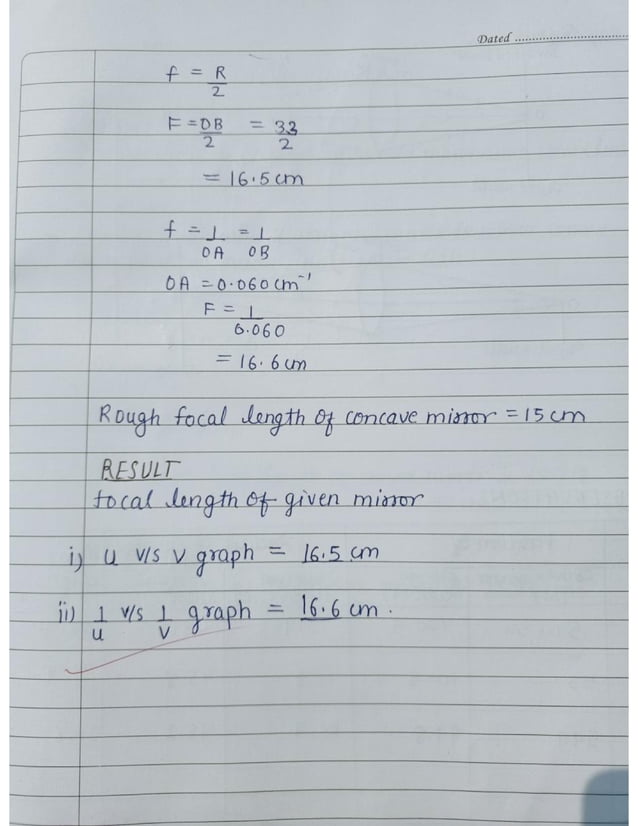 Dated
f = R/2
F = OB/2 = 33/2
= 16.5 cm
f = 1/OA = 1/OB
OA = 0.060 cm⁻¹
F = 1/0.060
= 16.6 cm
Rough focal length of concave mirror = 15 cm
RESULT
focal length of given mirror
i) u v/s v graph = 16.5 cm
ii) 1/u v/s 1/v graph = 16.6 cm.